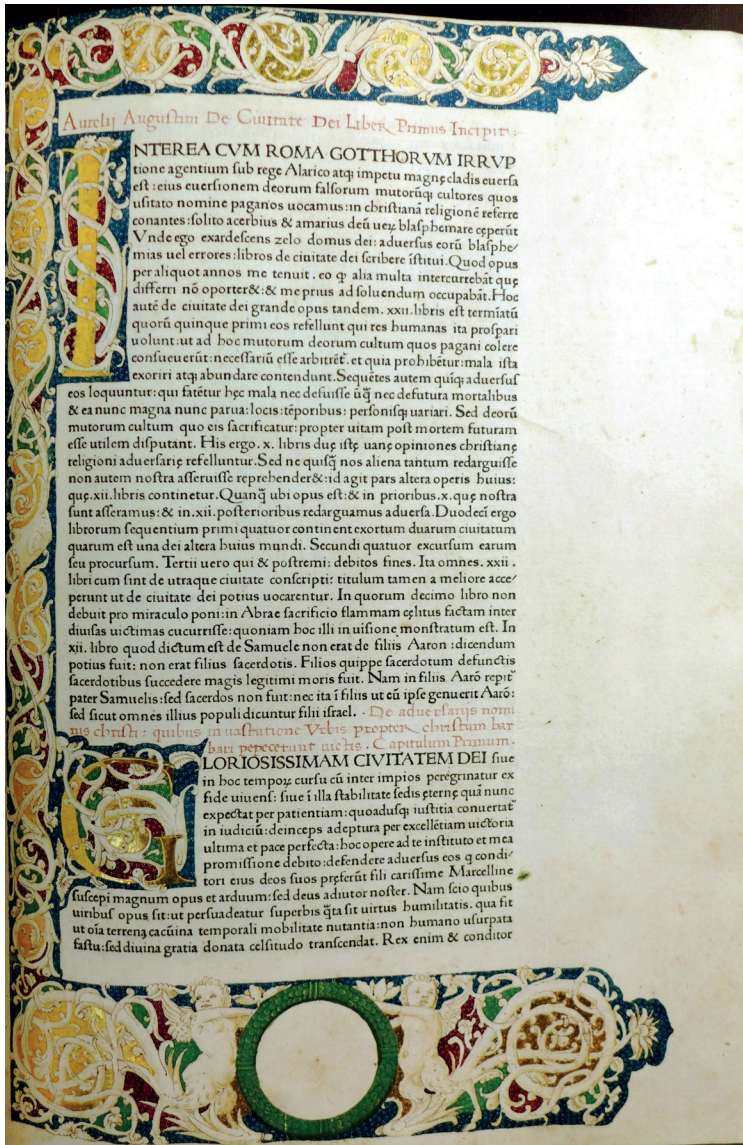 Aurelij Augustini De Ciuitate Dei Liber Primus Incipit:
INTEREA CVM ROMA GOTTHORVM IRRVP
tione agentium sub rege Alarico atqꝫ impetu magnę cladis euersa
est: eius euersionem deorum falsorum mutorūqꝫ cultores quos
usitato nomine paganos uocamus: in christianā religionē referre
conantes: solito acerbius & amarius deū ueꝝ blasphemare cęperūt
Vnde ego exardescens zelo domus dei: aduersus eorū blasphe/
mias uel errores: libros de ciuitate dei scribere īstitui. Quod opus
per aliquot annos me tenuit. eo ꝙ alia multa intercurrebāt quę
differri nō oporter&: & me prius ad soluendum occupabāt. Hoc
autē de ciuitate dei grande opus tandem .xxii. libris est termīatū
quorū quinque primi eos refellunt qui res humanas ita prosꝑari
uolunt: ut ad hoc mutorum deorum cultum quos pagani colere
consueuerūt: necessariū esse arbitrēt. et quia prohibētur: mala ista
exoriri atqꝫ abundare contendunt. Sequētes autem quiqꝫ aduersus
eos loquuntur: qui fatētur hęc mala nec defuisse ūq̄ nec defutura mortalibus
& ea nunc magna nunc parua: locis: tēporibus: personisqꝫ uariari. Sed deorū
mutorum cultum quo eis sacrificatur: propter uitam post mortem futuram
esse utilem disputant. His ergo .x. libris duę istę uanę opiniones christianę
religioni aduersarię refelluntur. Sed ne quisq̄ nos aliena tantum redarguisse
non autem nostra asseruisse reprehender&: id agit pars altera operis huius:
quę .xii. libris continetur. Quanq̄ ubi opus est: & in prioribus .x. quę nostra
sunt asseramus: & in .xii. posterioribus redarguamus aduersa. Duodecī ergo
librorum sequentium primi quatuor continent exortum duarum ciuitatum
quarum est una dei altera huius mundi. Secundi quatuor excursum earum
seu procursum. Tertii uero qui & postremi: debitos fines. Ita omnes .xxii.
libri cum sint de utraque ciuitate conscripti: titulum tamen a meliore acce/
perunt ut de ciuitate dei potius uocarentur. In quorum decimo libro non
debuit pro miraculo poni: in Abrae sacrificio flammam cęlitus factam inter
diuisas uictimas cucurrisse: quoniam hoc illi in uisione monstratum est. In
xii. libro quod dictum est de Samuele non erat de filiis Aaron: dicendum
potius fuit: non erat filius sacerdotis. Filios quippe sacerdotum defunctis
sacerdotibus succedere magis legitimi moris fuit. Nam in filiis Aarō reꝑit
pater Samuelis: sed sacerdos non fuit: nec ita ī filiis ut eū ipse genuerit Aarō:
sed sicut omnes illius populi dicuntur filii israel. · De aduersarijs nomi
nis christi: quibus in uastatione Vrbis propter christum bar
bari pepercerunt uictis. Capitulum Primum.
GLORIOSISSIMAM CIVITATEM DEI siue
in hoc tempoꝝ cursu cū inter impios peregrinatur ex
fide uiuens: siue ī illa stabilitate sedis ęternę quā nunc
expectat per patientiam: quoadusqꝫ iustitia conuertat̄
in iudiciū: deinceps adeptura per excellētiam uictoria
ultima et pace perfecta: hoc opere ad te instituto et mea
promissione debito: defendere aduersus eos q condi/
tori eius deos suos pręferūt fili carissime Marcelline
suscepi magnum opus et arduum: sed deus adiutor noster. Nam scio quibus
uiribus opus sit: ut persuadeatur superbis q̄ta sit uirtus humilitatis. qua fit
ut oīa terrena cacūina temporali mobilitate nutantia: non humano usurpata
fastu: sed diuina gratia donata celsitudo transcendat. Rex enim & conditor